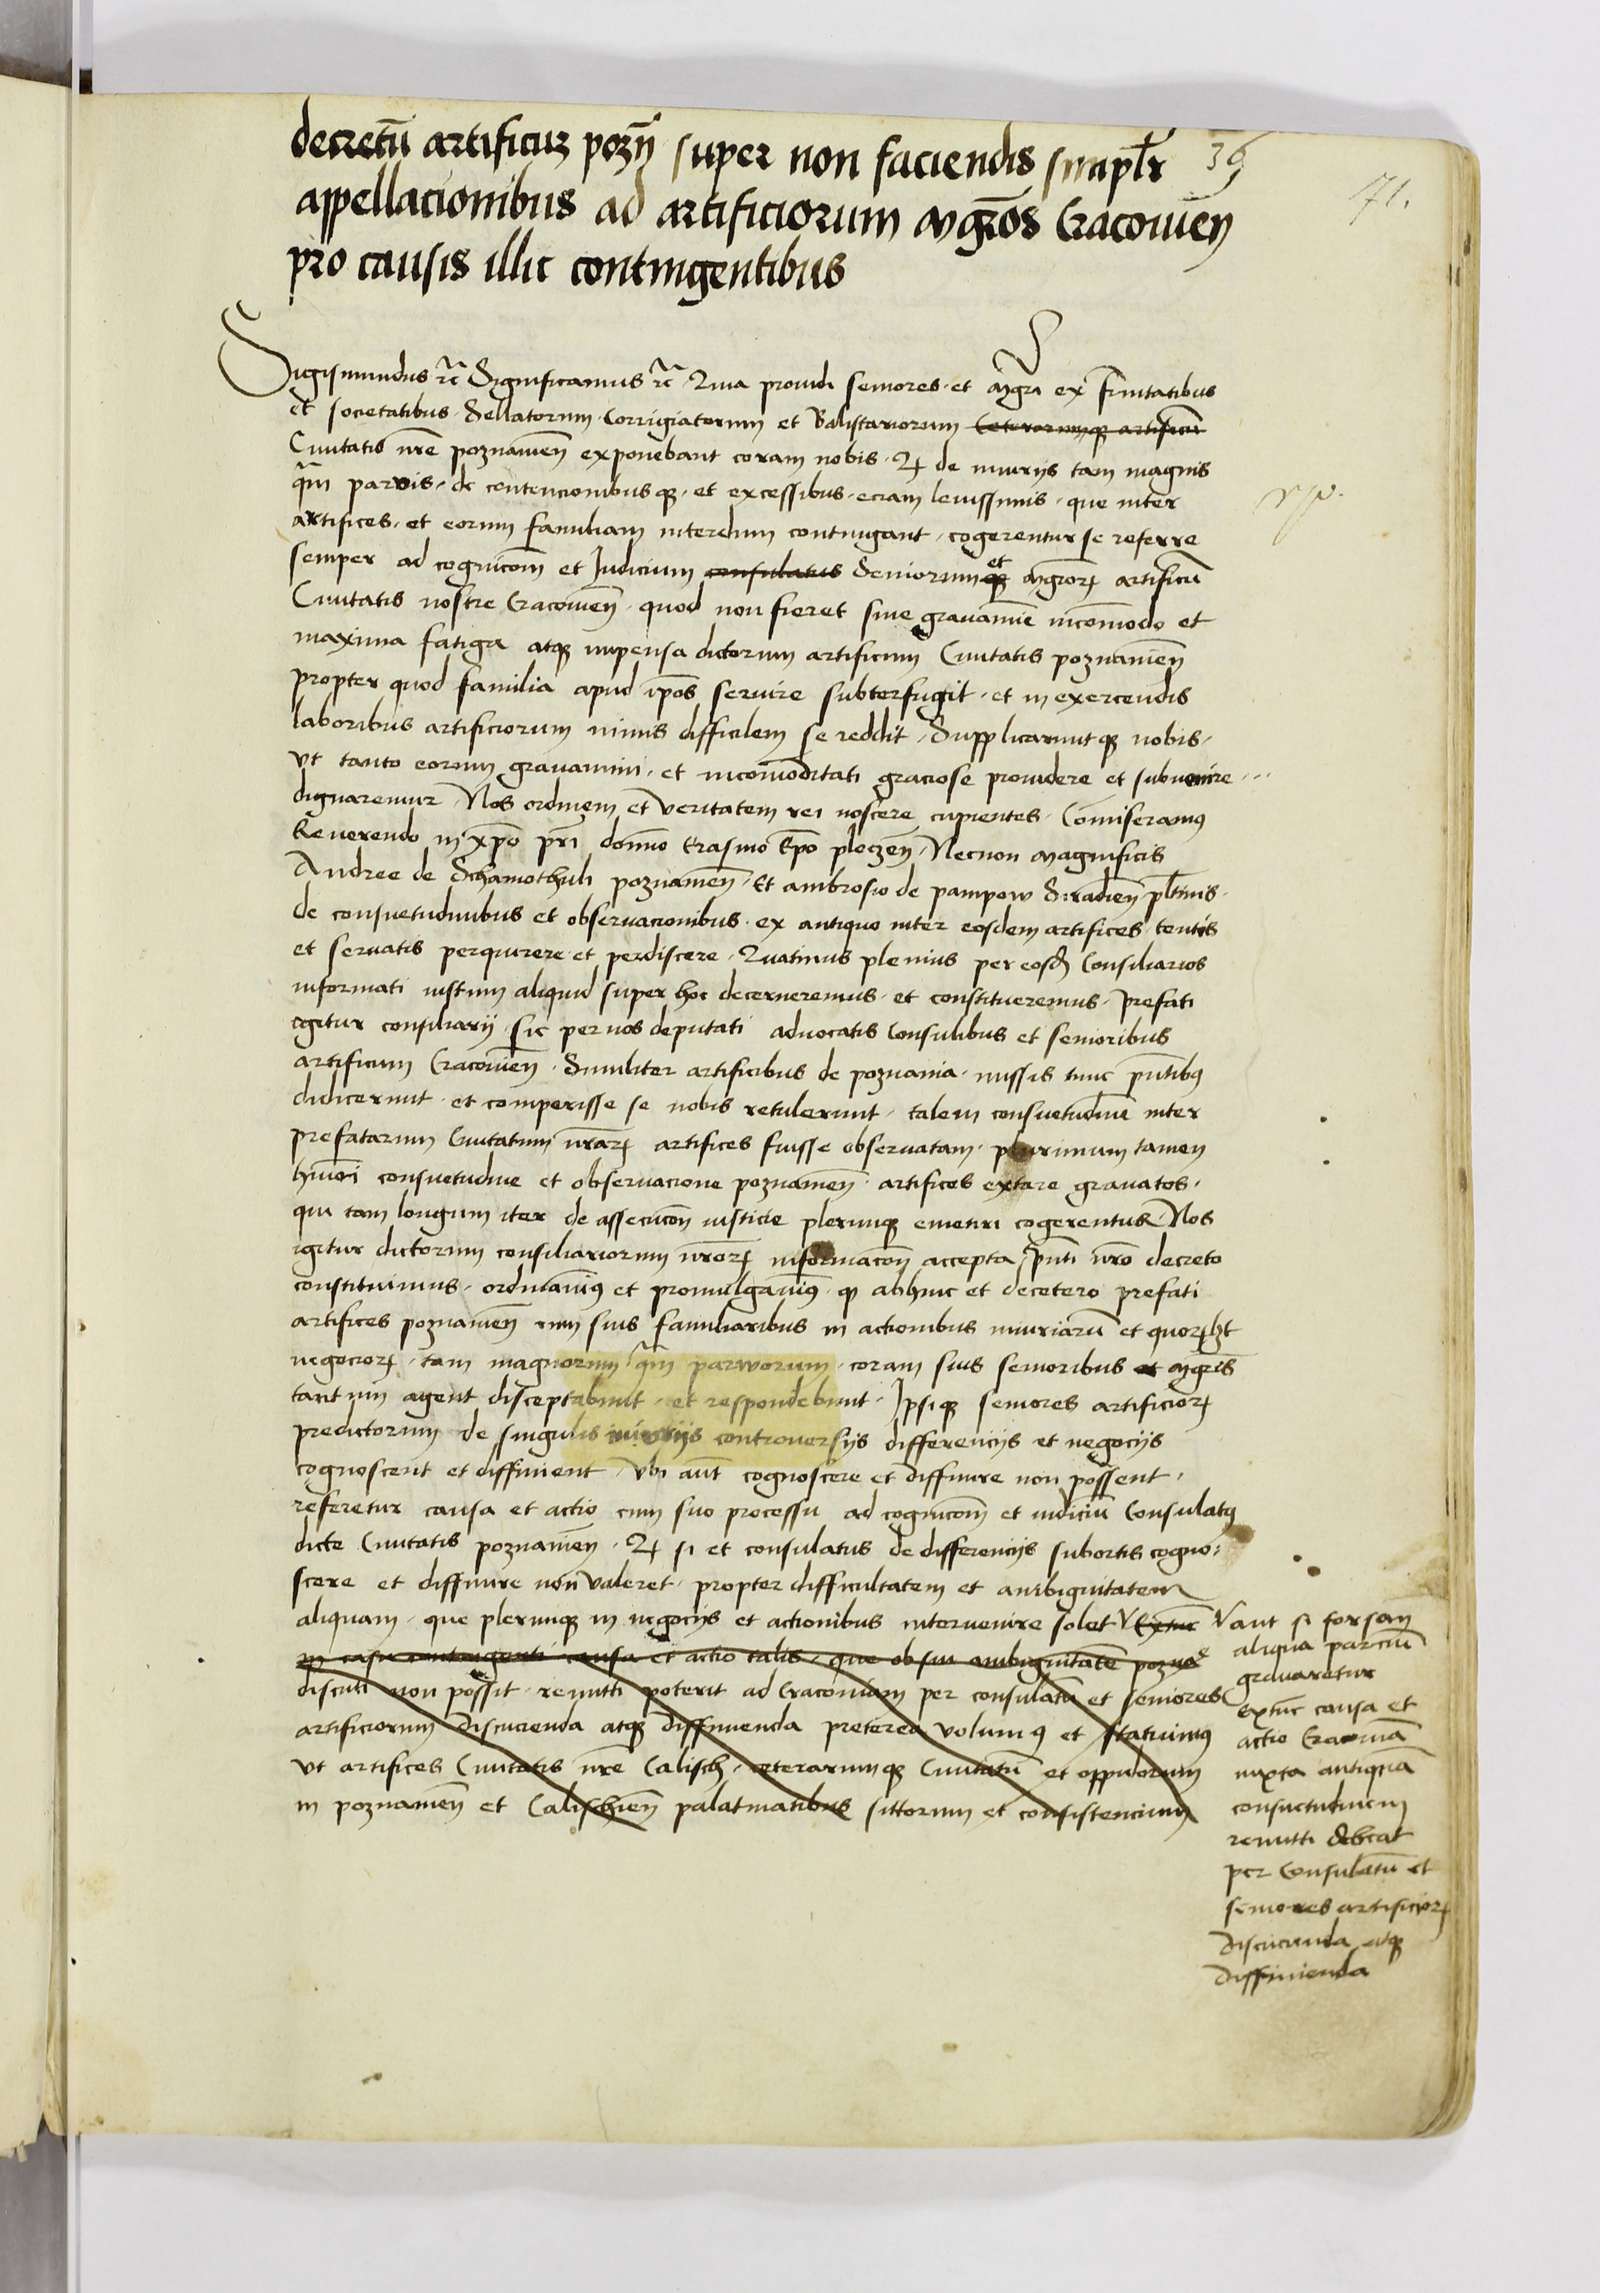 decretū artificuz pozn̄ super non faciendis simpl̄r 39
appellacionibus ad artificiorum mgr̄os Cracouien̄ 71.
pro causis illic contingentibus
Sigismundus rc̄ Significamus rc̄ Quia prouidi seniores et mgr̄i ex fr̄nitatibus
et societatibus Sellatorum Corrigiatorum et Balistariorum Ceterorumqȝ artificū
Ciuitatis nr̄e poznanien̄ exponebant coram nobis Qꝫ de iniurijs tam magnis
q̄m paruis de contencionibusqȝ et excessibus eciam leuissimis que inter
artifices et eorum familiam interdum contingant cogerentur se referre
semper ad cognicōm et Iudicium consulatus Seniorumqȝ et mgr̄orꝝ artificū
Ciuitatis nostre Cracouien̄ quod non fieret sine grauamīe incōmodo et
maxima fatiga atqȝ impensa dictorum artificum Ciuitatis poznanien̄
propter quod familia apud ip̄os seruire subterfugit et in exercendis
laboribus artificiorum nimis difficilem se reddit Supplicaruntqȝ nobis
vt tanto eorum grauamini et incōmoditati graciose prouidere et subuenire
dignaremur Nos ordinem et veritatem rei noscere cupientes Cōmiseramꝰ
Reuerendo in xp̄o pr̄i domīo Erasmo Ep̄o ploczen̄ Necnon Magnificis
Andree de Schamothuli poznanien̄ Et ambrosio de pampow Siradien̄ pl̄tinis
de consuetudinibus et obseruacionibus ex antiquo inter eosdem artifices tentis
et seruatis perquirere et perdiscere Quatinus plenius per eosd̄ Consiliarios
informati iustum aliquid super hoc decerneremus et constitueremus Prefati
igitur consiliarij sic per nos deputati aduocatis Consulibus et senioribus
artificum Cracouien̄ Similiter artificibus de poznania missis tunc pn̄tibꝰ
didicerunt et comperisse se nobis retulerunt talem consuetudinē inter
prefatarum Ciuitatum nr̄arꝝ artifices fuisse obseruatam plurimum tamen
hmōi consuetudine et obseruacione poznanien̄ artifices extare grauatos
qui tam longum iter de assecucōn iusticie plerumqȝ emetiri cogerentur Nos
igitur dictorum consiliariorum nr̄orꝝ informacōn accepta pn̄ti nr̄o decreto
constituimus ordinamꝰ et promulgamꝰ qꝫ abhinc et decetero prefati
artifices poznanien̄ cum suis familiaribus in actionibus iniuriarū et quorꝝlꝫt
negociorꝝ tam magnorum q̄m paruorum coram suis senioribus et mgr̄is
tantum agent disceptabunt et respondebunt Ipsiqȝ seniores artificiorꝝ
predictorum de singulis iniurijs controuersijs differencijs et negocijs
cognoscent et diffinient vbi aut̄ cognoscere et diffinire non possent
referetur causa et actio cum suo processu ad cognicōm et iudiciū Consulatꝰ
dicte Ciuitatis poznanien̄ Qꝫ si et consulatus de differencijs subortis cogno:
scere et diffinire non valeret propter difficultatem et ambiguitatem
aliquam que plerumqȝ in negocijs et actionibus interuenire solet Extunc
in casu contingenti causa et actio talis que ob sui ambiguitatē pozna͞e
discuti non possit remitti poterit ad Cracouiam per consulatū et seniores
artificiorum discucienda atqȝ diffinienda preterea volumꝰ et statuimꝰ
vt artifices Ciuitatis nr̄e Calisch ceterarumqȝ Ciuitatū et oppidorum
in poznanien̄ et Calischien̄ palatinatibus sittorum et consistencium
aut si forsan
aliqua parciū
grauaretur
extūc causa et
actio Cracouiā
iuxta antiquā
consuetudinem
remitti debeat
per Consulatū et
seniores artificiorꝝ
discucienda atqȝ
diffinienda